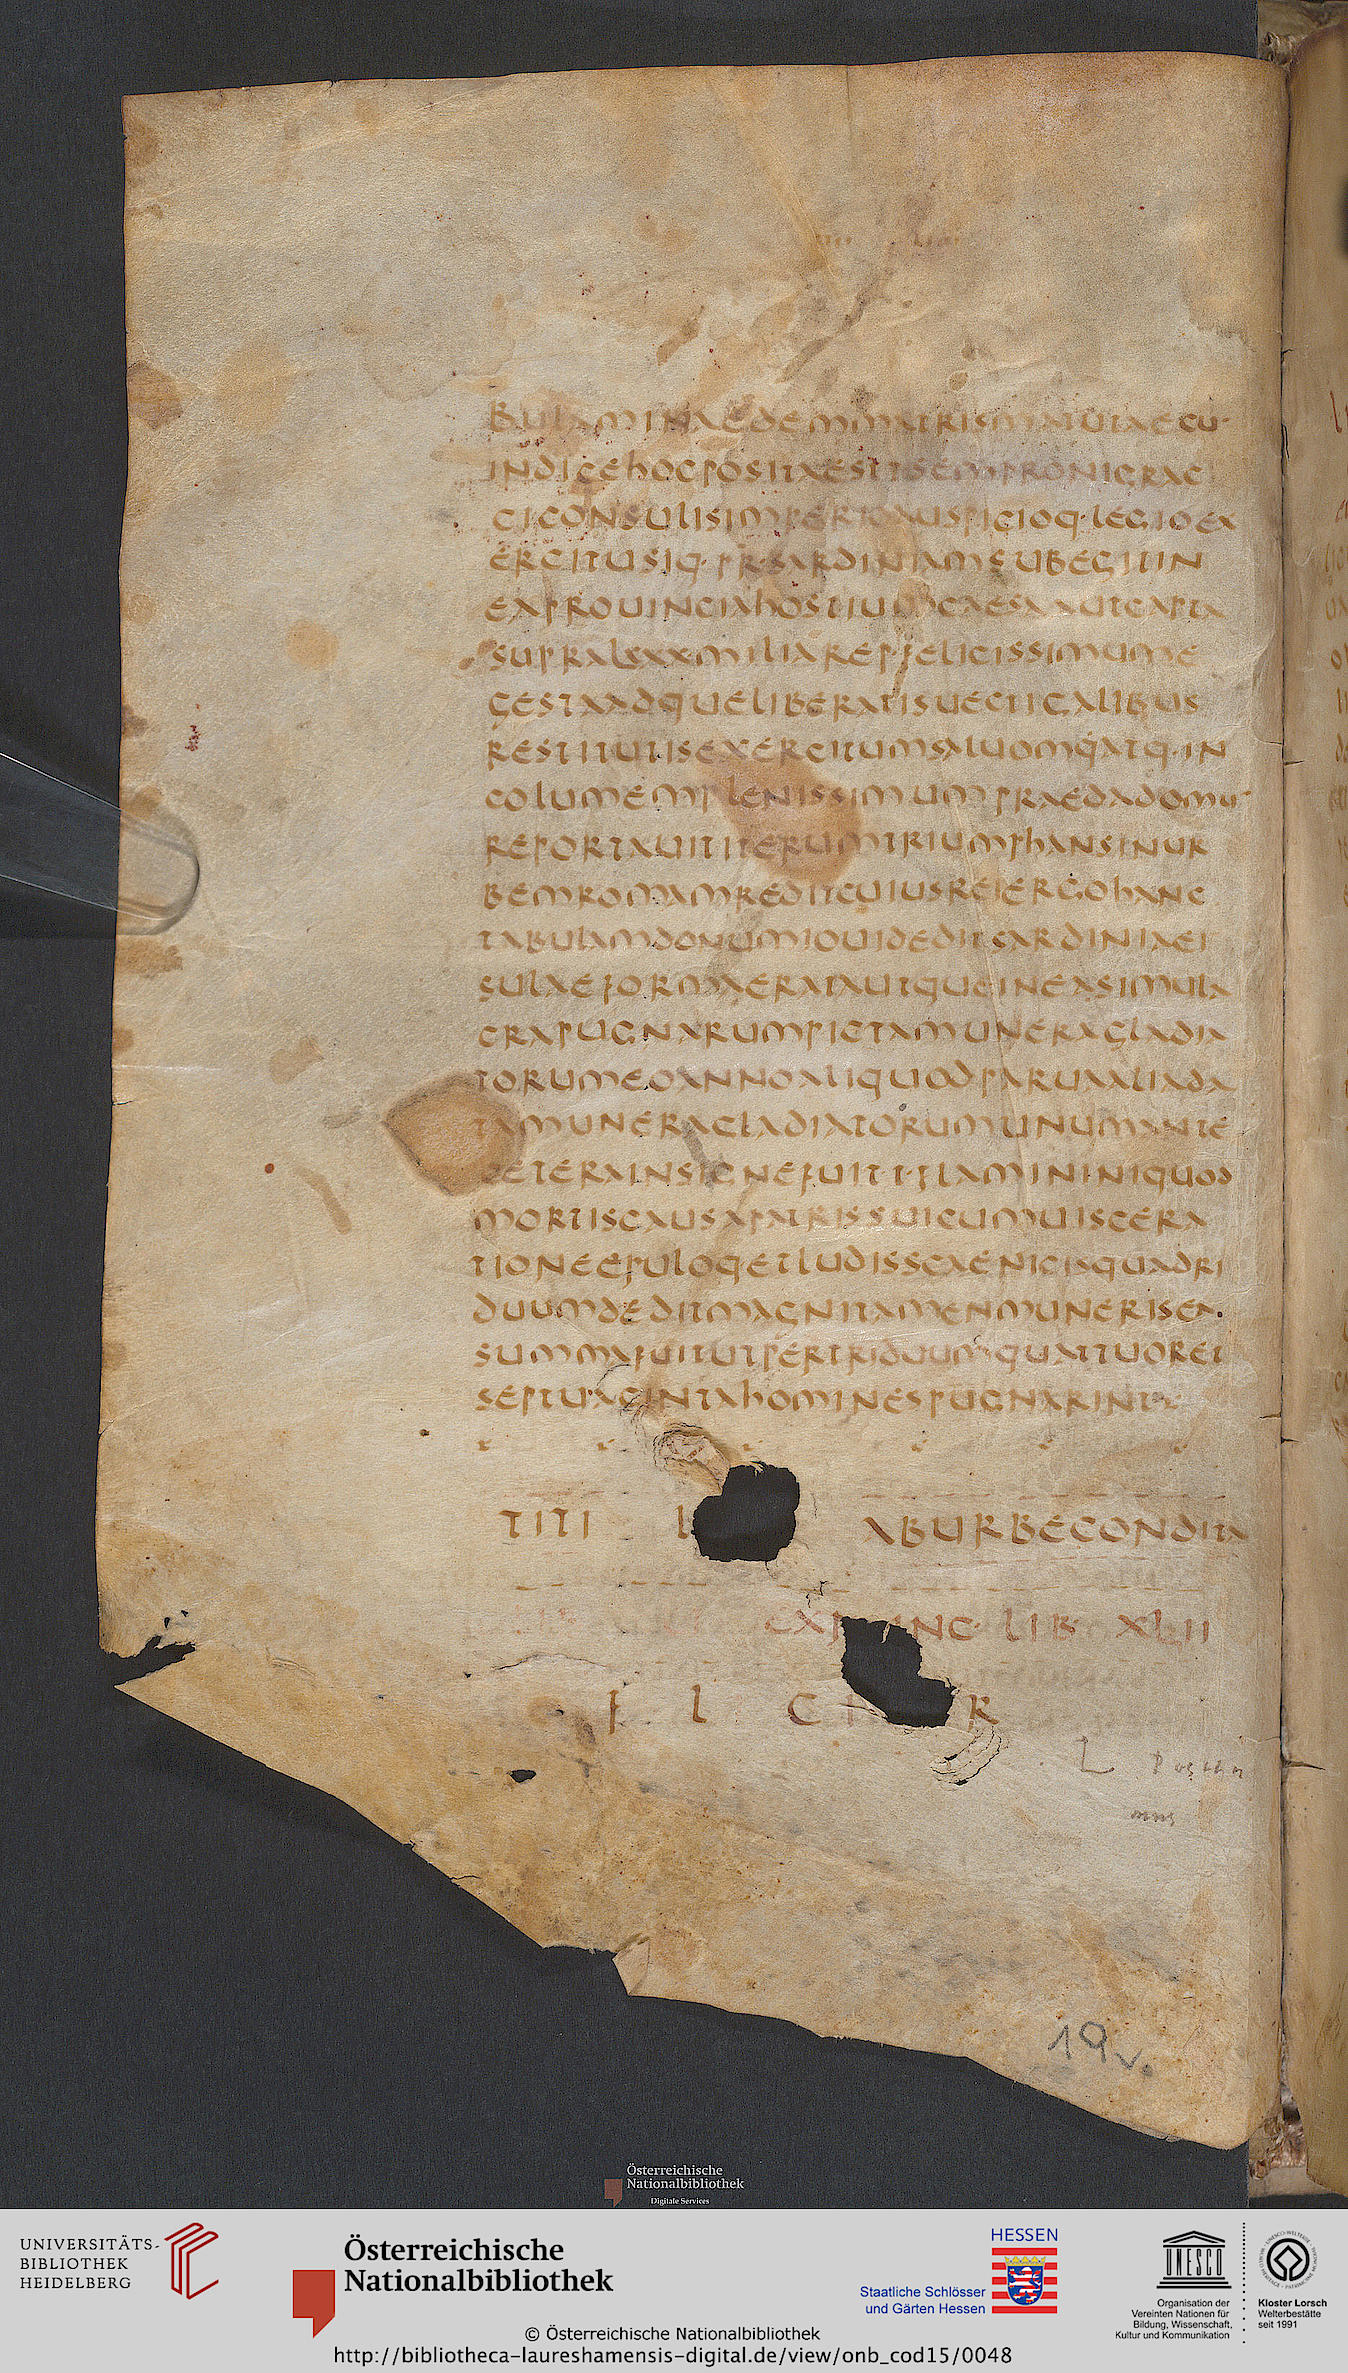 BULAMINAEDEMMATRISMATUTAECU·
INDICEHOCPOSITAESTTISEMPRONIGRAC
CICONSULISIMPERIOAUSPICIOQ·LEGIOEX
ERCITUSIQ·P·R·SARDINIAMSUBEGITIN
EAPROUINCIAHOSTIUMCAESAAUTCAPTA
SUPRALXXXMILIAREP·FELICISSIMUME
GESTAADQUELIBERATISUECTIGALIBUS
RESTITUTISEXERCITUMSALUOMQATQ·IN
COLUMEMPLENISSIMUMPRAEDADOMU
REPORTAUITITERUMTRIUMPHANSINUR
BEMROMAMREDITCUIUSREIERGOHANC
TABULAMDONUMIOUIDEDITSARDINIAEI
SULAEFORMAERATAUTQUEINEASIMULA
CRAPUGNARUMPICTAMUNERAGLADIA
TORUMEOANNOALIQUODPARUAALIADA
TAMUNERAGLADIATORUMUNUMANTE
CETERAINSIGNEFUITT·FLAMININIQUOD
MORTISCAUSAPATRISSUICUMUISCERA
TIONEEPULOQETLUDISSCAENICISQUADRI
DUUMDEDITMAGNITAMENMUNERISEA
SUMMAFUITUTPERTRIDUUMQUATTUORET
SEPTUAGINTAHOMINESPUGNARINT
TITI L ABURBECONDITA
EXP INC· LIB· XLII
F L C I R
L Posthu
mus
19v.
Österreichische
Nationalbibliothek
Digitale Services
UNIVERSITÄTS-
BIBLIOTHEK
HEIDELBERG
Österreichische
Nationalbibliothek
HESSEN
Staatliche Schlösser
und Gärten Hessen
UNESCO
Organisation der
Vereinten Nationen für
Bildung, Wissenschaft,
Kultur und Kommunikation
Kloster Lorsch
Welterbestätte
seit 1991
© Österreichische Nationalbibliothek
http://bibliotheca-laureshamensis-digital.de/view/onb_cod15/0048